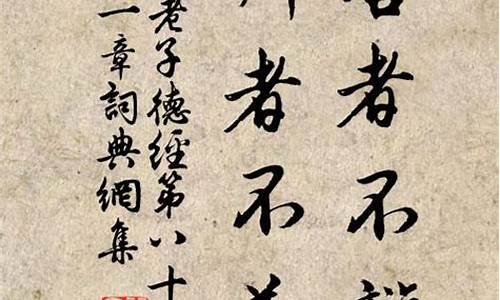 者不
者不
老子德經第八十
一章詞典網集